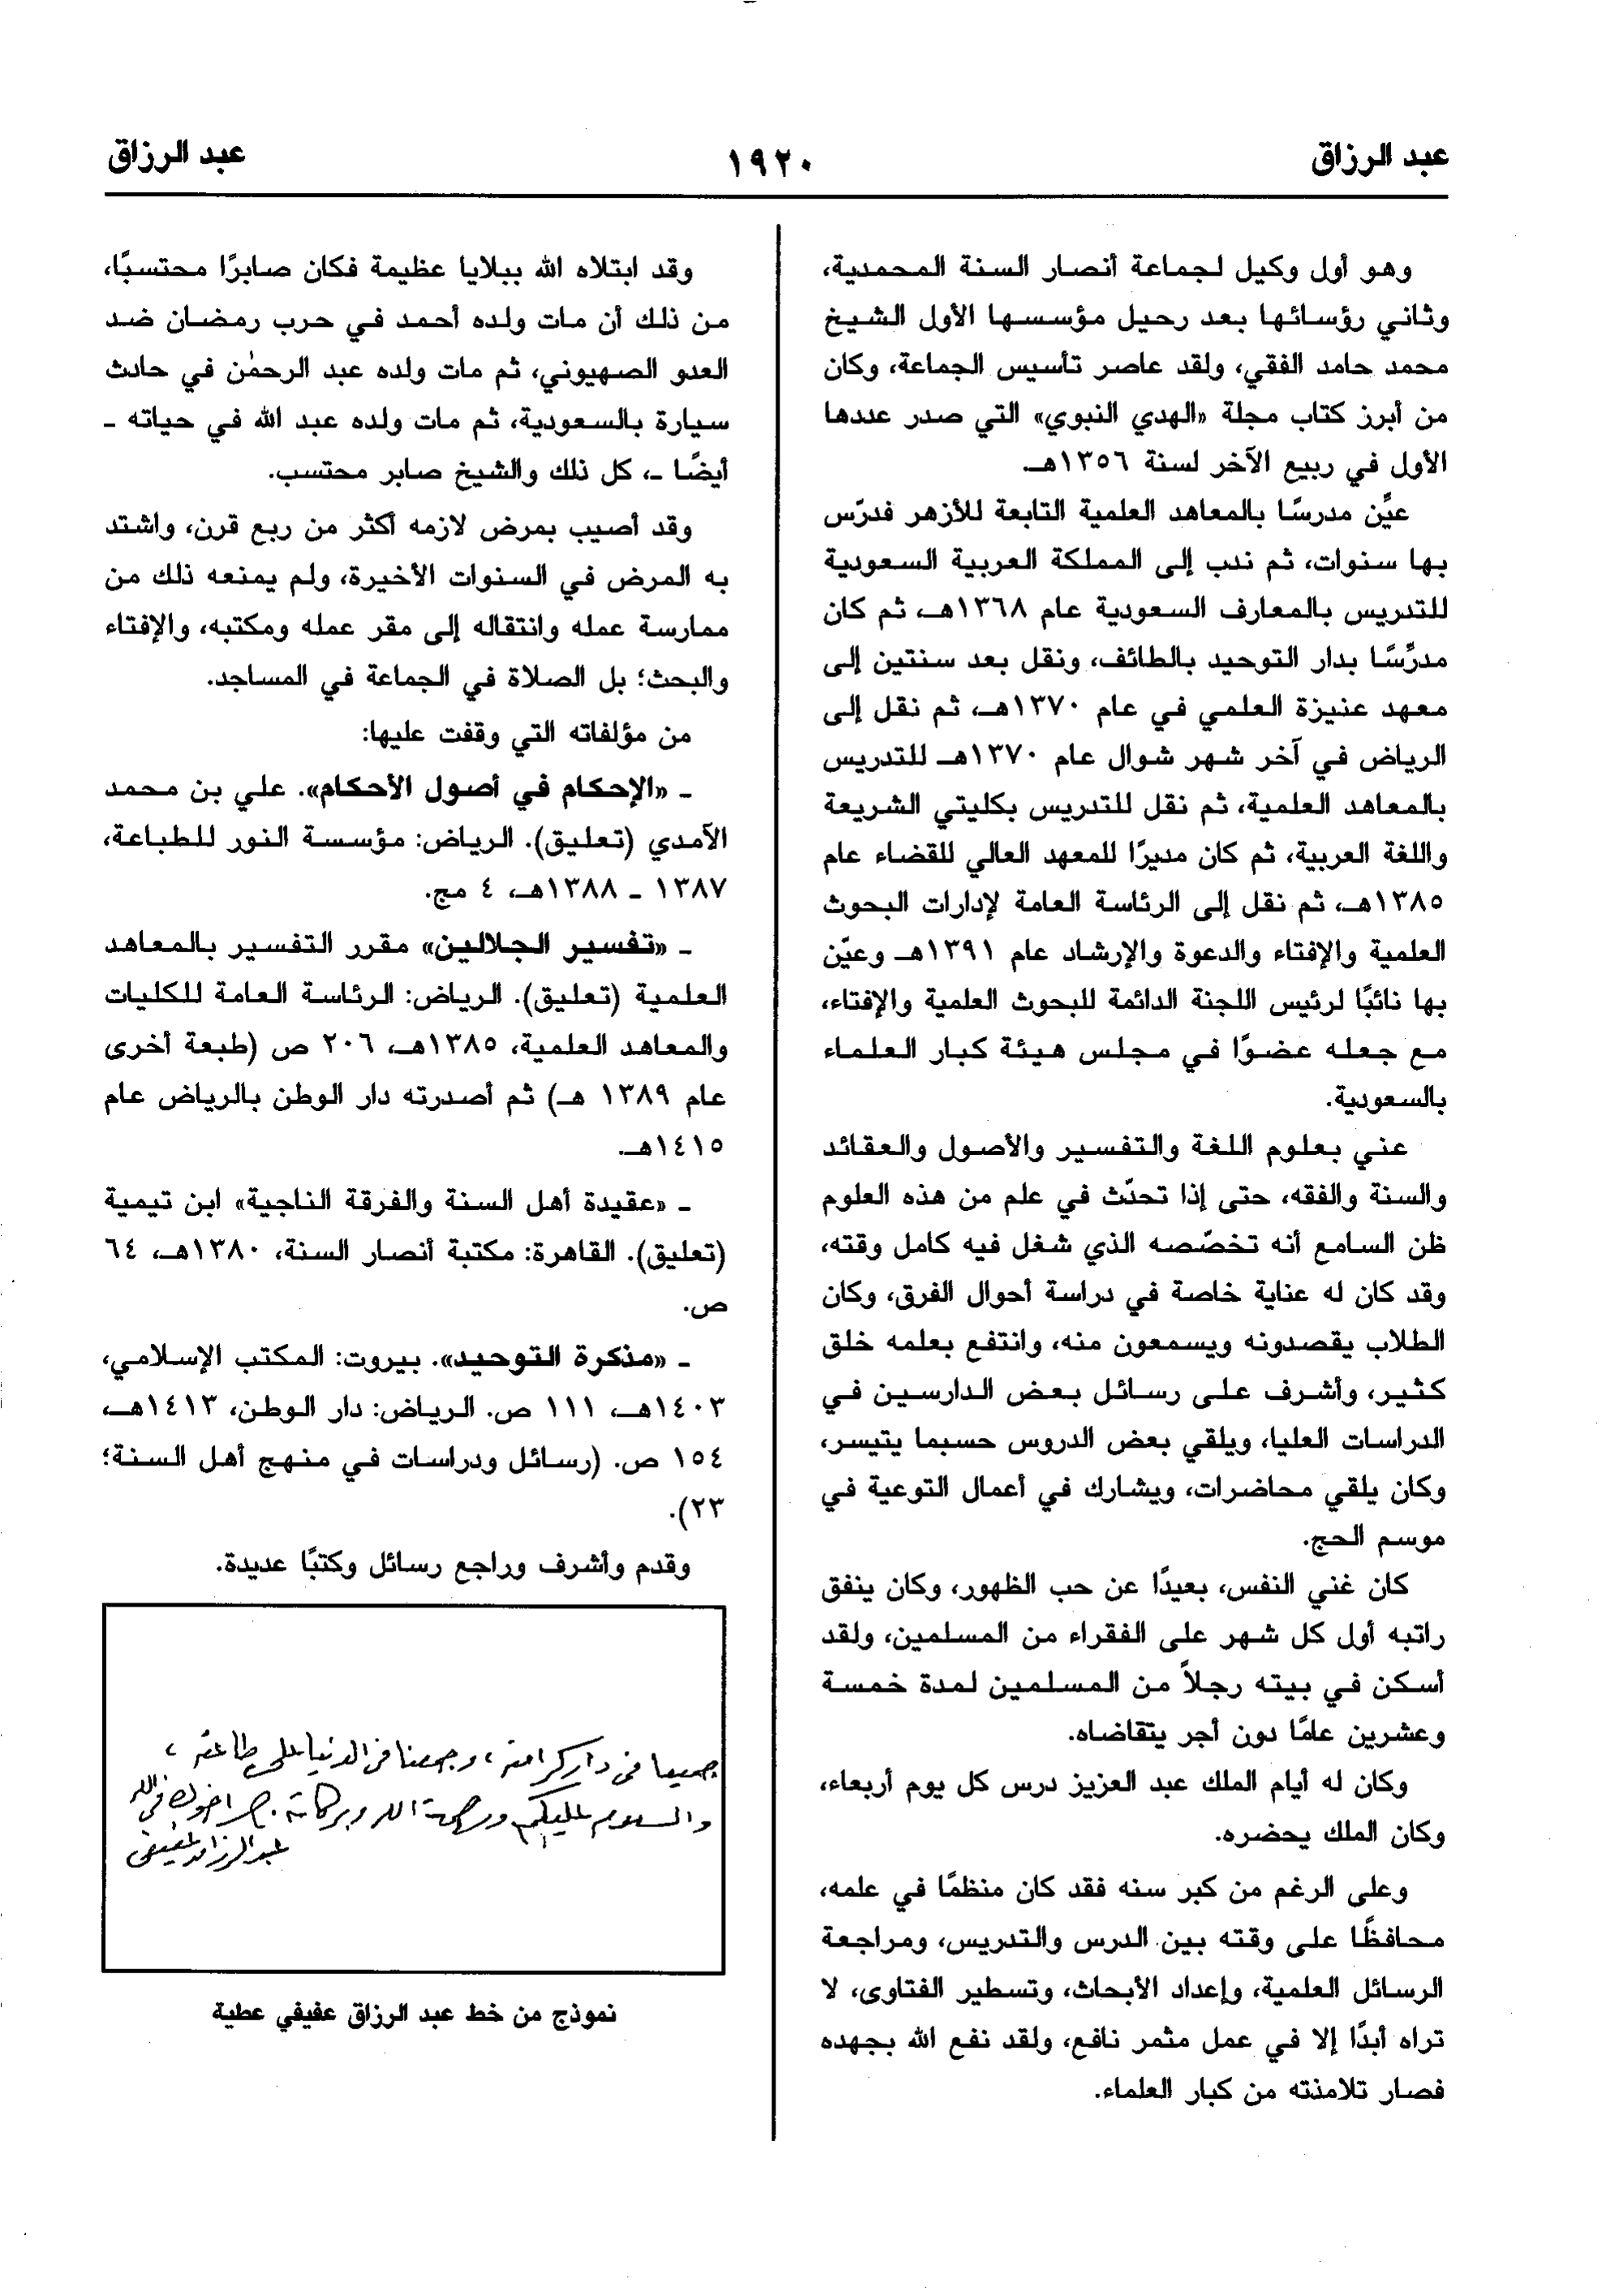 عبد الرزاق
١٩٢٠
عبد الرزاق
وهو أول وكيل لجماعة أنصار السنة المحمدية،
وثاني رؤسائها بعد رحيل مؤسسها الأول الشيخ
محمد حامد الفقي، ولقد عاصر تأسيس الجماعة، وكان
من أبرز كتاب مجلة «الهدي النبوي» التي صدر عددها
الأول في ربيع الآخر لسنة ١٣٥٦هـ.
عيِّن مدرسًا بالمعاهد العلمية التابعة للأزهر فدرّس
بها سنوات، ثم ندب إلى المملكة العربية السعودية
للتدريس بالمعارف السعودية عام ١٣٦٨هـ، ثم كان
مدرِّسًا بدار التوحيد بالطائف، ونقل بعد سنتين إلى
معهد عنيزة العلمي في عام ١٣٧٠هـ، ثم نقل إلى
الرياض في آخر شهر شوال عام ١٣٧٠هـ للتدريس
بالمعاهد العلمية، ثم نقل للتدريس بكليتي الشريعة
واللغة العربية، ثم كان مديرًا للمعهد العالي للقضاء عام
١٣٨٥هـ، ثم نقل إلى الرئاسة العامة لإدارات البحوث
العلمية والإفتاء والدعوة والإرشاد عام ١٣٩١هـ وعيّن
بها نائبًا لرئيس اللجنة الدائمة للبحوث العلمية والإفتاء،
مع جعله عضوًا في مجلس هيئة كبار العلماء
بالسعودية.
عني بعلوم اللغة والتفسير والأصول والعقائد
والسنة والفقه، حتى إذا تحدّث في علم من هذه العلوم
ظن السامع أنه تخصّصه الذي شغل فيه كامل وقته،
وقد كان له عناية خاصة في دراسة أحوال الفرق، وكان
الطلاب يقصدونه ويسمعون منه، وانتفع بعلمه خلق
كثير، وأشرف على رسائل بعض الدارسين في
الدراسات العليا، ويلقي بعض الدروس حسبما يتيسر،
وكان يلقي محاضرات، ويشارك في أعمال التوعية في
موسم الحج.
كان غني النفس، بعيدًا عن حب الظهور، وكان ينفق
راتبه أول كل شهر على الفقراء من المسلمين، ولقد
أسكن في بيته رجلاً من المسلمين لمدة خمسة
وعشرين عامًا دون أجر يتقاضاه.
وكان له أيام الملك عبد العزيز درس كل يوم أربعاء،
وكان الملك يحضره.
وعلى الرغم من كبر سنه فقد كان منظمًا في علمه،
محافظًا على وقته بين الدرس والتدريس، ومراجعة
الرسائل العلمية، وإعداد الأبحاث، وتسطير الفتاوى، لا
تراه أبدًا إلا في عمل مثمر نافع، ولقد نفع الله بجهده
فصار تلامذته من كبار العلماء.
وقد ابتلاه الله ببلايا عظيمة فكان صابرًا محتسبًا،
من ذلك أن مات ولده أحمد في حرب رمضان ضد
العدو الصهيوني، ثم مات ولده عبد الرحمٰن في حادث
سيارة بالسعودية، ثم مات ولده عبد الله في حياته -
أيضًا -، كل ذلك والشيخ صابر محتسب.
وقد أصيب بمرض لازمه أكثر من ربع قرن، واشتد
به المرض في السنوات الأخيرة، ولم يمنعه ذلك من
ممارسة عمله وانتقاله إلى مقر عمله ومكتبه، والإفتاء
والبحث؛ بل الصلاة في الجماعة في المساجد.
من مؤلفاته التي وقفت عليها:
- «الإحكام في أصول الأحكام». علي بن محمد
الآمدي (تعليق). الرياض: مؤسسة النور للطباعة،
١٣٨٧ - ١٣٨٨هـ، ٤ مج.
- «تفسير الجلالين» مقرر التفسير بالمعاهد
العلمية (تعليق). الرياض: الرئاسة العامة للكليات
والمعاهد العلمية، ١٣٨٥هـ، ٢٠٦ ص (طبعة أخرى
عام ١٣٨٩ هـ) ثم أصدرته دار الوطن بالرياض عام
١٤١٥هـ.
- «عقيدة أهل السنة والفرقة الناجية» ابن تيمية
(تعليق). القاهرة: مكتبة أنصار السنة، ١٣٨٠هـ، ٦٤
ص.
- «مذكرة التوحيد». بيروت: المكتب الإسلامي،
١٤٠٣هـ، ١١١ ص. الرياض: دار الوطن، ١٤١٣هـ،
١٥٤ ص. (رسائل ودراسات في منهج أهل السنة؛
٢٣).
وقدم وأشرف وراجع رسائل وكتبًا عديدة.
جميعا في دار كرامته، وجمعنا في الدنيا على طاعته،
والسلام عليكم ورحمة الله وبركاته. في الله
عبد الرزاق عفيفي
نموذج من خط عبد الرزاق عفيفي عطية